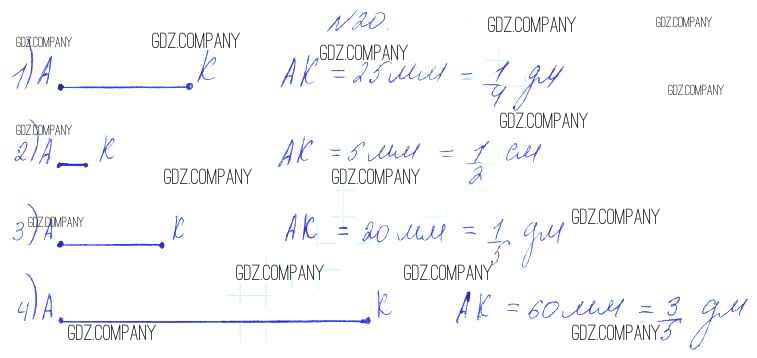 N20.
GDZ.COMPANY GDZ.COMPANY GDZ.COMPANY GDZ.COMPANY GDZ.COMPANY
1) А К АК = 25 мм = 1/4 дм
GDZ.COMPANY
GDZ.COMPANY GDZ.COMPANY
2) А К АК = 5 мм = 1/2 см
GDZ.COMPANY GDZ.COMPANY
GDZ.COMPANY GDZ.COMPANY
3) А К АК = 20 мм = 1/5 дм
GDZ.COMPANY GDZ.COMPANY
4) А К АК = 60 мм = 3/5 дм
GDZ.COMPANY GDZ.COMPANY